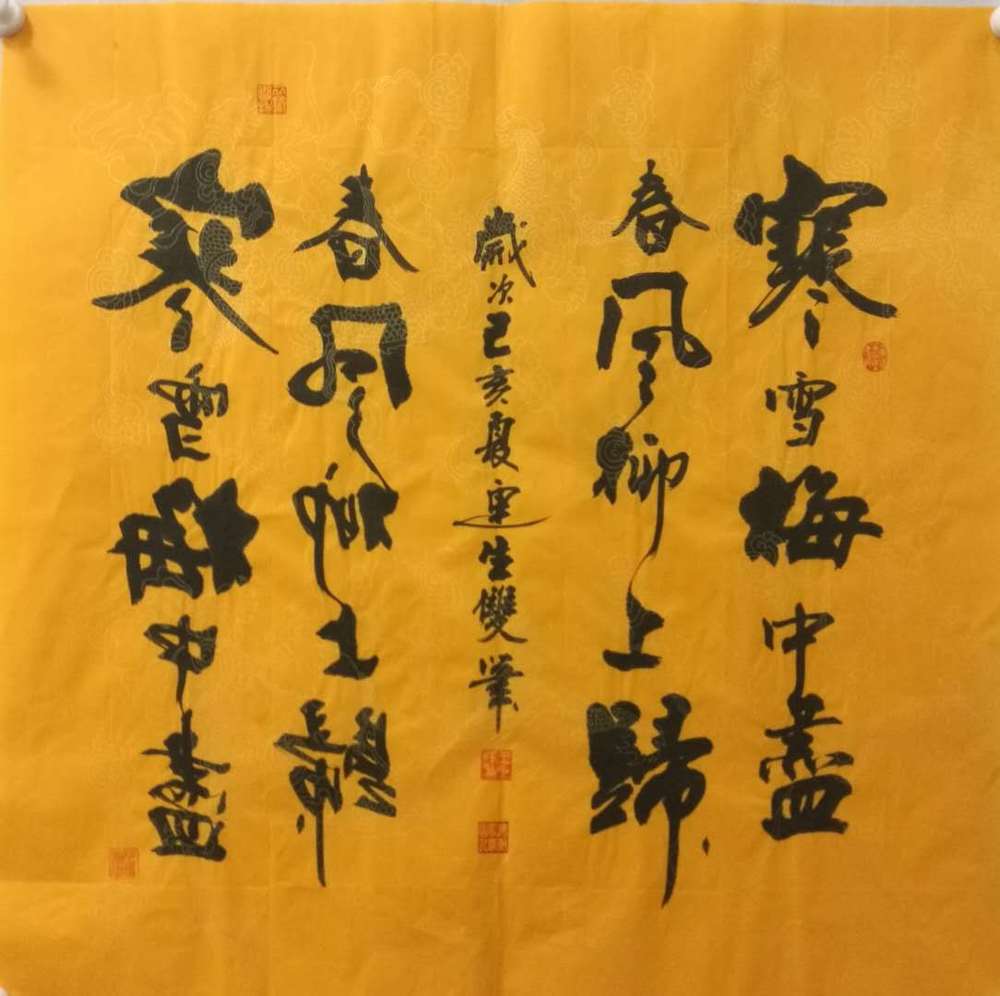 寒雪梅中盡
春風柳上歸
歲次己亥夏運生雙筆
春風柳上歸
寒雪梅中盡